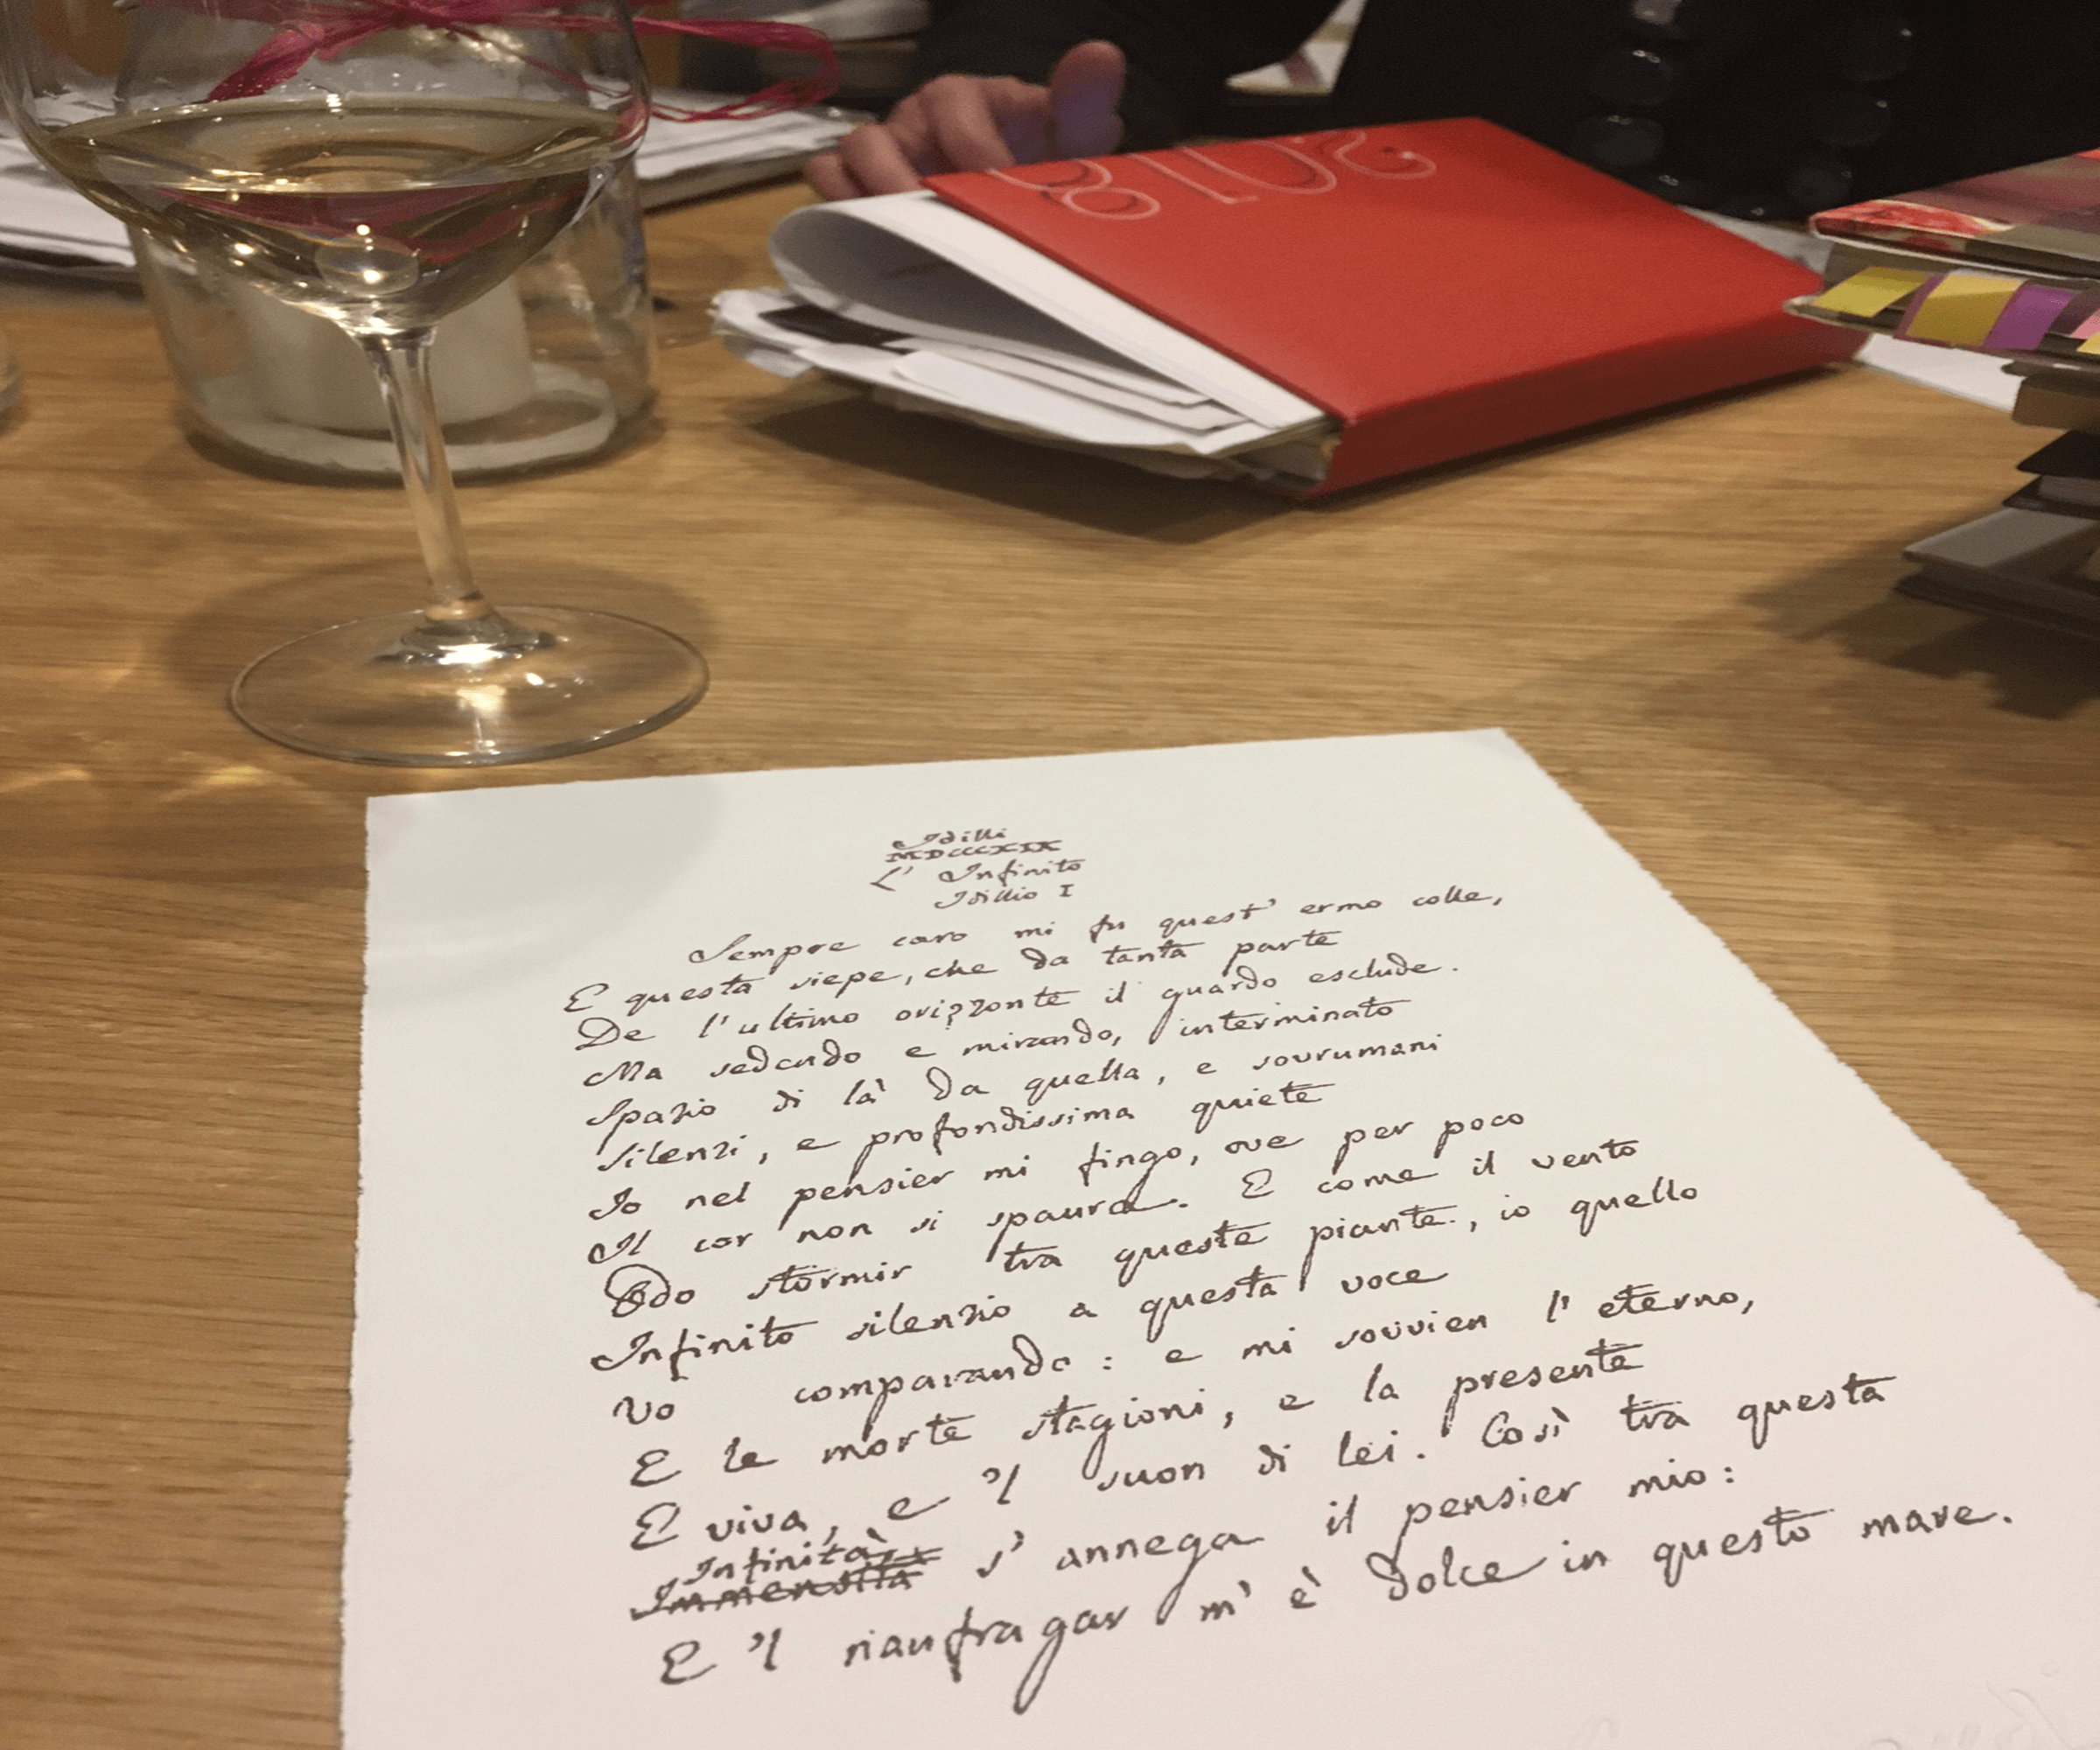 2018
Idilli
MDCCCXIX
L' Infinito
Idillio I
Sempre caro mi fu quest' ermo colle,
E questa siepe, che da tanta parte
De l'ultimo orizzonte il guardo esclude.
Ma sedendo e mirando, interminato
Spazio di là da quella, e sovrumani
Silenzi, e profondissima quiete
Io nel pensier mi fingo, ove per poco
Il cor non si spaura. E come il vento
Odo stormir tra queste piante, io quello
Infinito silenzio a questa voce
Vo comparando: e mi sovvien l' eterno,
E le morte stagioni, e la presente
E viva, e 'l suon di lei. Così tra questa
Infinità
Immensità s' annega il pensier mio:
E 'l naufragar m' è dolce in questo mare.